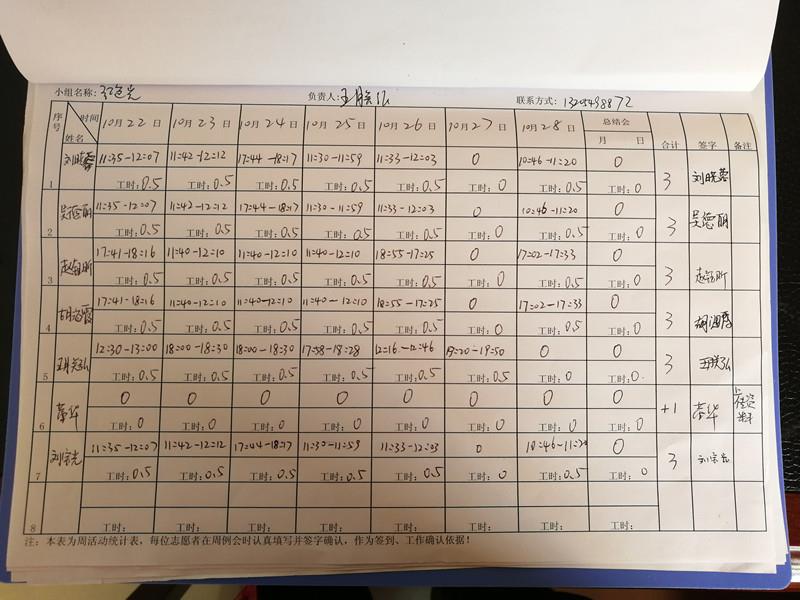 小组名称: 红色光 负责人: 王朕弘 联系方式:
序号 时间 姓名 10月22日 10月23日 10月24日 10月25日 10月26日 10月27日 10月28日 总结会 月 日 合计 签字 备注
1 刘晓蓉 11:35-12:07 11:42-12:12 17:44-18:17 11:30-11:59 11:33-12:03 0 10:46-11:20 0 3 刘晓蓉
工时:0.5 工时:0.5 工时:0.5 工时:0.5 工时:0.5 工时:0 工时:0.5 工时:0
2 吴德丽 11:35-12:07 11:42-12:12 17:44-18:17 11:30-11:59 11:33-12:03 0 10:46-11:20 0 3 吴德丽
工时:0.5 工时:0.5 工时:0.5 工时:0.5 工时:0.5 工时:0 工时:0.5 工时:0
3 17:41-18:16 11:40-12:10 11:40-12:10 11:40-12:10 18:55-17:25 0 17:02-17:33 0 3
工时:0.5 工时:0.5 工时:0.5 工时:0.5 工时:0.5 工时:0 工时:0.5 工时:0
4 17:41-18:16 11:40-12:10 11:40-12:10 11:40-12:10 18:55-17:25 0 17:02-17:33 0 3
工时:0.5 工时:0.5 工时:0.5 工时:0.5 工时:0.5 工时:0 工时:0.5 工时:0
5 王朕弘 12:30-13:00 18:00-18:30 18:00-18:30 17:58-18:28 12:16-12:46 19:20-19:50 0 0 3 王朕弘
工时:0.5 工时:0.5 工时:0.5 工时:0.5 工时:0.5 工时:0.5 工时:0 工时:0
6 蔡华 0 0 0 0 0 0 0 0 +1 蔡华
工时:0 工时:0 工时:0 工时:0 工时:0 工时:0 工时:0 工时:0
7 刘宗光 11:35-12:07 11:42-12:12 17:44-18:17 11:30-11:59 11:33-12:03 0 10:46-11:20 0 3 刘宗光
工时:0.5 工时:0.5 工时:0.5 工时:0.5 工时:0.5 工时:0 工时:0.5 工时:0
8 工时: 工时: 工时: 工时: 工时: 工时: 工时: 工时:
注: 本表为周活动统计表,每位志愿者在周例会时认真填写并签字确认,作为签到、工作确认依据!